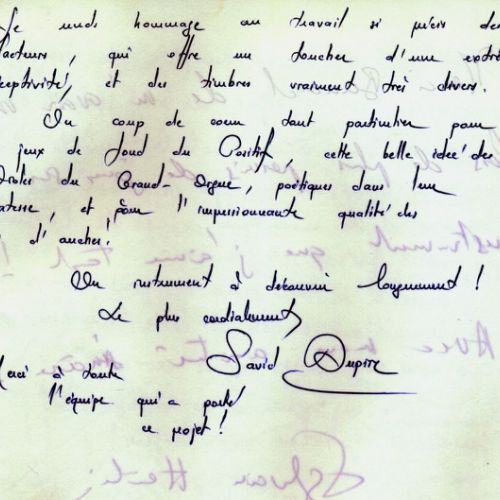 Je rends hommage au travail si précis des
facteurs, qui offre un toucher d'une extrê
ceptivité, et des timbres vraiment très divers.
Un coup de coeur tout particulier pour
jeux de fond du Positif, cette belle idée des
du Grand-Orgue, poétiques dans leur
et pour l'impressionnante qualité des
d'anches!
Un instrument à découvrir longuement!
Le plus cordialement,
David Dupire
Merci à toute
l'équipe qui a porté
ce projet!